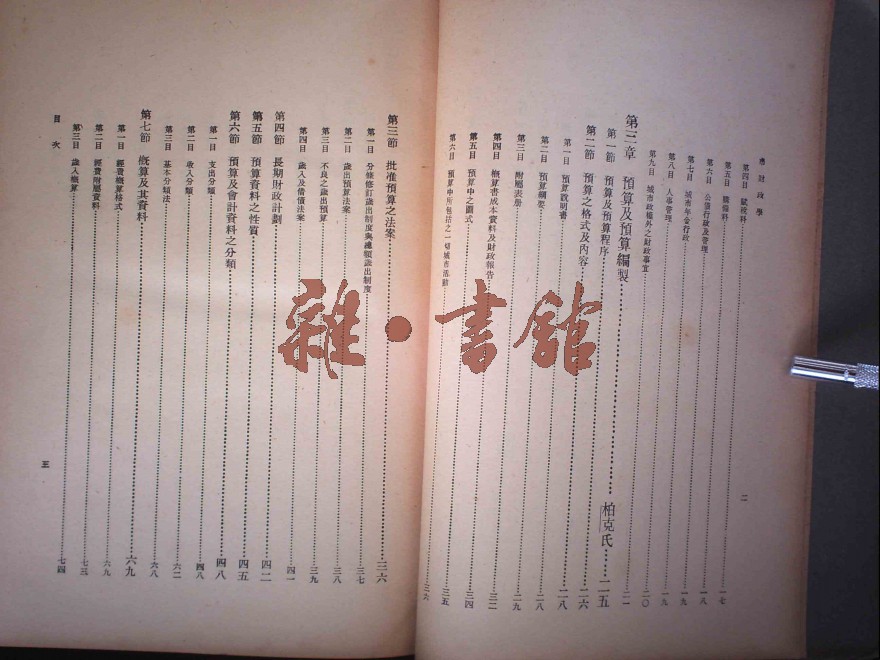 市財政學
二
第四目 賦稅科 一七
第五目 購辦科 一七
第六目 公債行政及管理 一八
第七目 城市年金行政 一九
第八目 人事管理 一九
第九目 城市政權外之財政事宜 二〇
第三章 預算及預算編製 柏克氏 二五
第一節 預算及預算程序 二五
第二節 預算之格式及內容 二六
第一目 預算說明書 二八
第二目 預算綱要 二八
第三目 附屬表册 二九
第四目 概算書成本資料及財政報告 三二
第五目 預算中之圖式 三四
第六目 預算中所包括之一切城市活動 三五
第三節 批准預算之法案 三六
第一目 分條修訂歲出制度與總額歲出制度 三七
第二目 歲出預算法案 三八
第三目 不良之歲出預算 三九
第四目 歲入及借債法案 四一
第四節 長期財政計劃 四二
第五節 預算資料之性質 四五
第六節 預算及會計資料之分類 四八
第一目 支出分類 四八
第二目 收入分類 六二
第三目 基本分類法 六八
第七節 概算及其資料 六九
第一目 經費概算格式 六九
第二目 經費附屬資料 七三
第三目 歲入概算 七四
目次
三
雜·書館